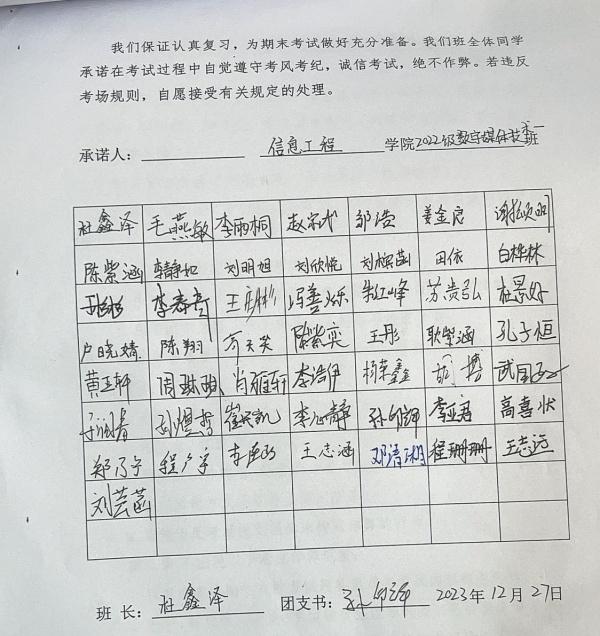 我们保证认真复习，为期末考试做好充分准备。我们班全体同学
承诺在考试过程中自觉遵守考风考纪，诚信考试，绝不作弊。若违反
考场规则，自愿接受有关规定的处理。
承诺人： 信息工程 学院2022级数字媒体技术一班
杜鑫泽 毛燕敏 李雨桐 赵宗才 邹浩 姜金良
陈紫涵 韩静如 刘明旭 刘欣悦 刘桐菡 田依 白桦林
李春贵 王彦彬 冯善乐 朱红峰 苏贵弘 杜景好
卢晓婧 陈翔 陈紫奕 王彤 耿紫涵 孔子恒
黄玉轩 周琳琳 肖雅轩 李浩伊 杨梦鑫 胡博
孙煜哲 崔兴凯 李心静 李亚君 高喜状
郑乃宁 程广宇 王志涵 邓清珊 程珊珊 王志远
刘芸菡
班 长： 杜鑫泽 团支书： 2023年12月27日